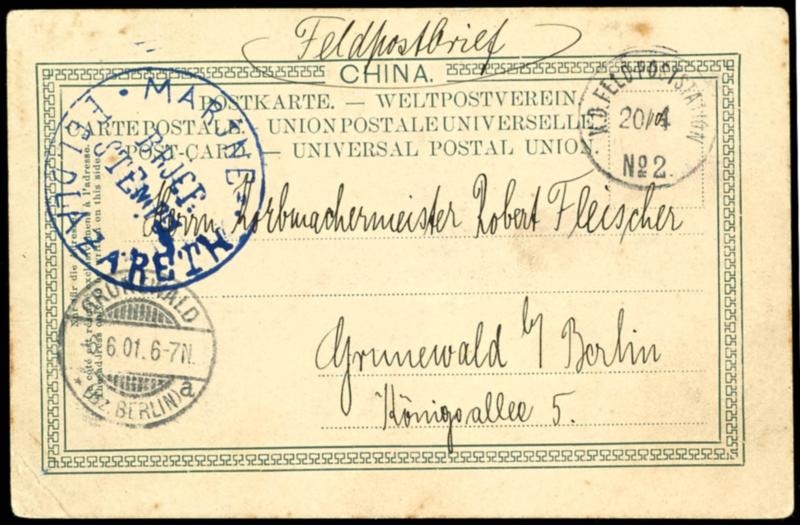 Feldpostbrief
CHINA.
POSTKARTE. — WELTPOSTVEREIN.
CARTE POSTALE. UNION POSTALE UNIVERSELLE.
POST-CARD. — UNIVERSAL POSTAL UNION.
Nur für die Adresse.
Côté réservé exclusivement à l'adresse.
K.D. FELD-POSTSTATION
20/4
No 2.
MARINE-
FELDLAZARETH
BRIEF-
STEMPEL
Herrn Korbmachermeister Robert Fleischer
GRUNEWALD
6.01.6-7N.
(BZ. BERLIN) a
Grunewald b/ Berlin
Königsallee 5.